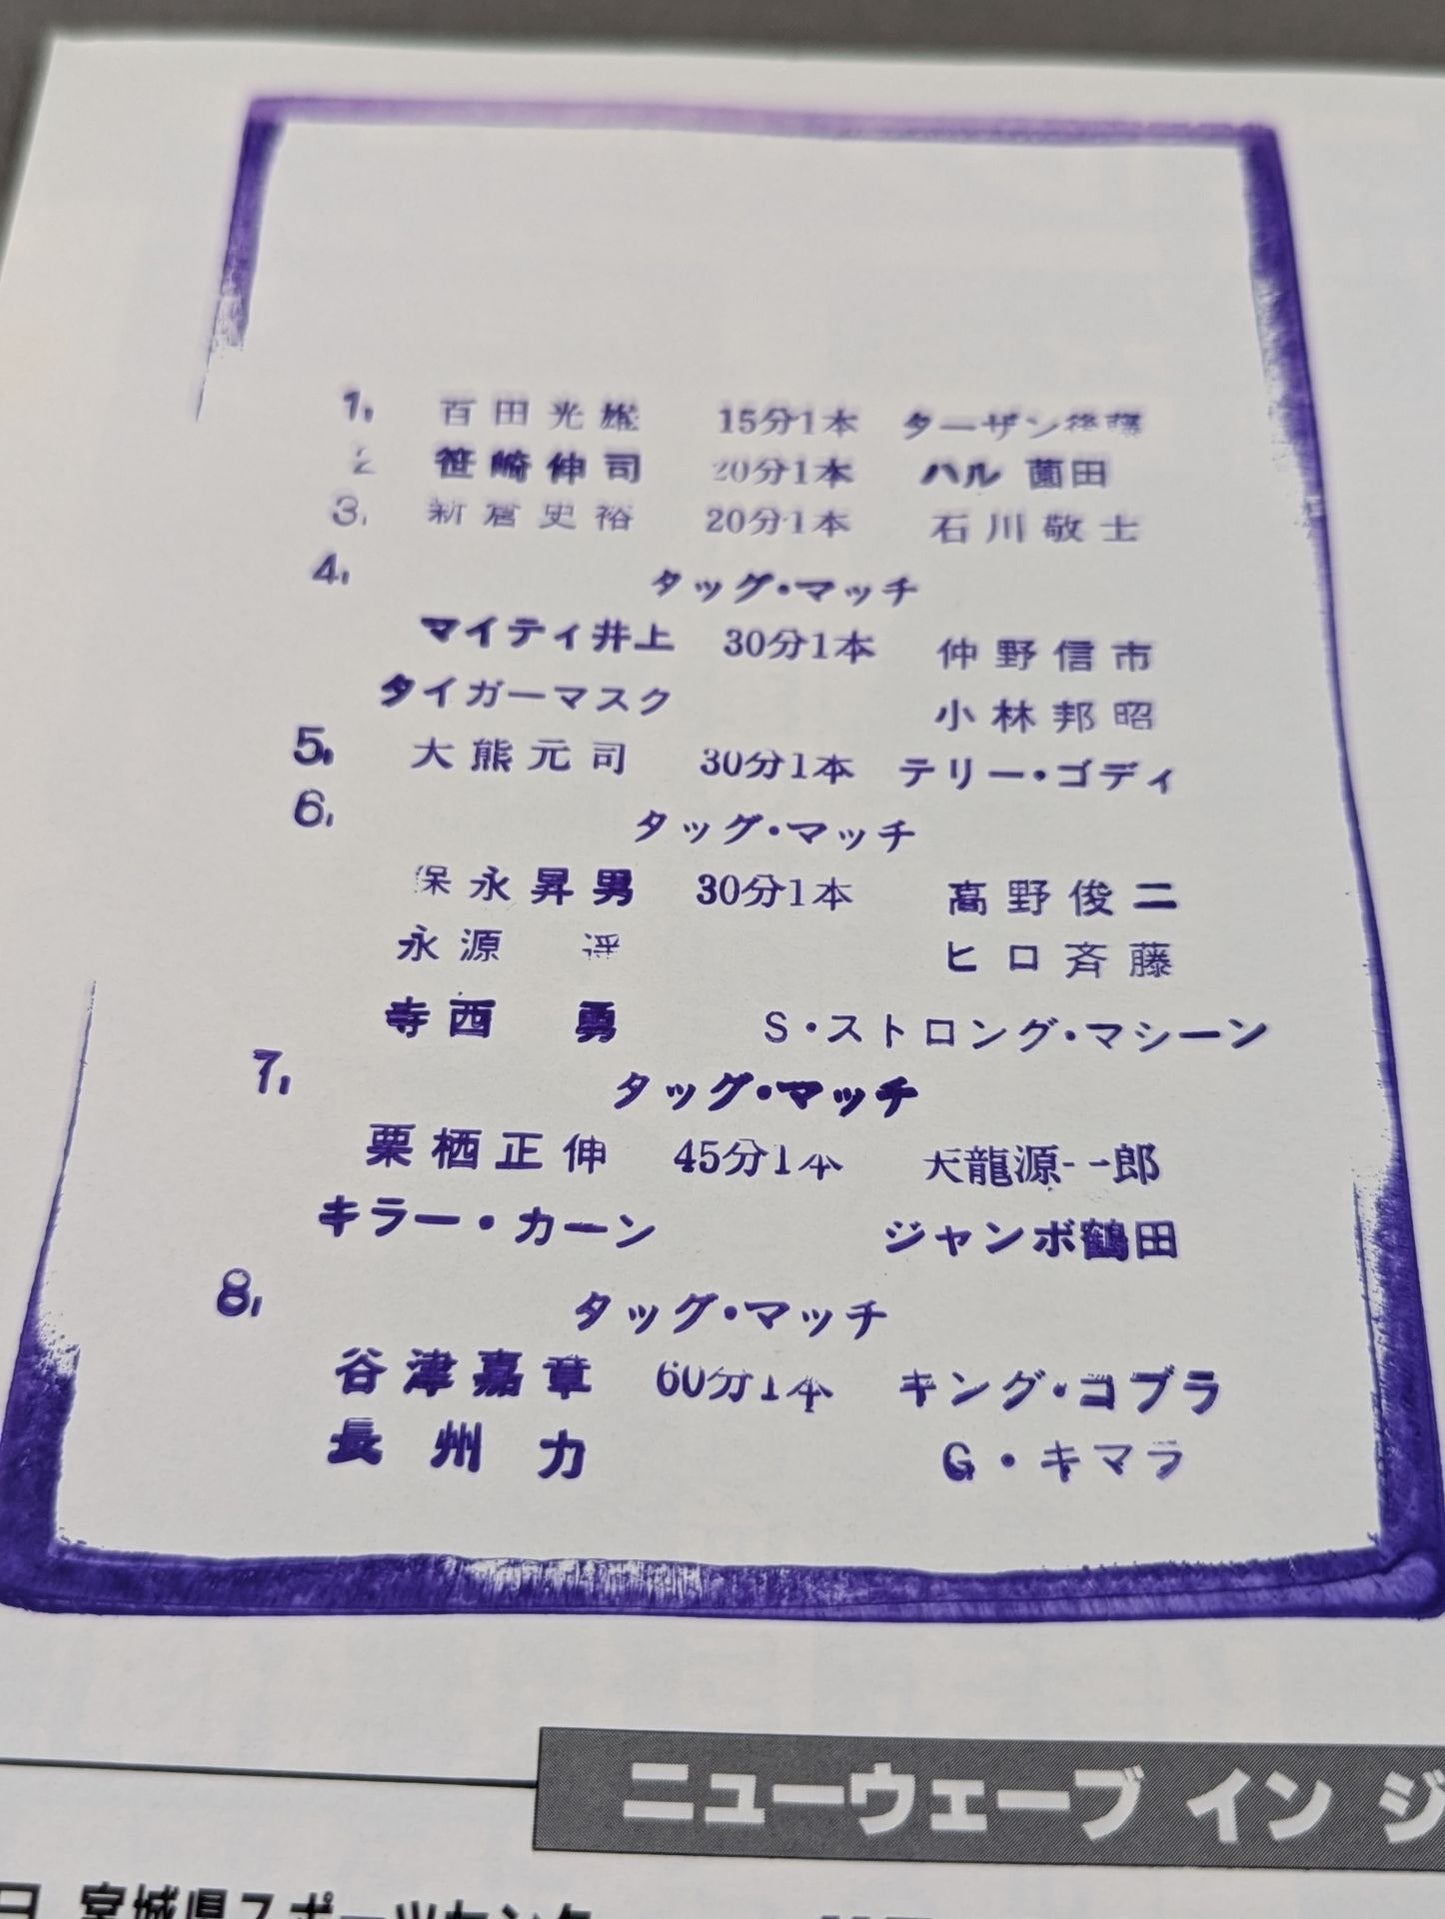 1, 百田光雄 15分1本 ターザン後藤
2 笹崎伸司 20分1本 ハル薗田
3, 新倉史裕 20分1本 石川敬士
4, タッグ・マッチ
マイティ井上 30分1本 仲野信市
タイガーマスク 小林邦昭
5, 大熊元司 30分1本 テリー・ゴディ
6, タッグ・マッチ
保永昇男 30分1本 高野俊二
永源 遥 ヒロ斉藤
寺西 勇 S・ストロング・マシーン
7, タッグ・マッチ
栗栖正伸 45分1本 天龍源一郎
キラー・カーン ジャンボ鶴田
8, タッグ・マッチ
谷津嘉章 60分1本 キング・コブラ
長州力 G・キマラ
ニューウェーブ イン ジ
日 宮城県スポーツセンタ